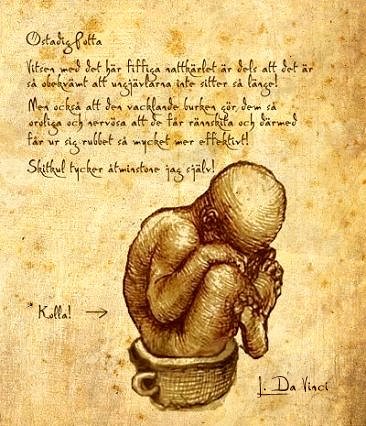 Ostadig Potta
Vitsen med det här fiffiga nattkärlet är dels att det är
så obekvämt att ungjävlarna inte sitter så länge!
Men också att den vacklande burken gör dem så
oroliga och nervösa att de får rännskita och därmed
får ur sig rubbet så mycket mer effektivt!
Skitkul tycker åtminstone jag själv!
* Kolla! →
L. Da Vinci